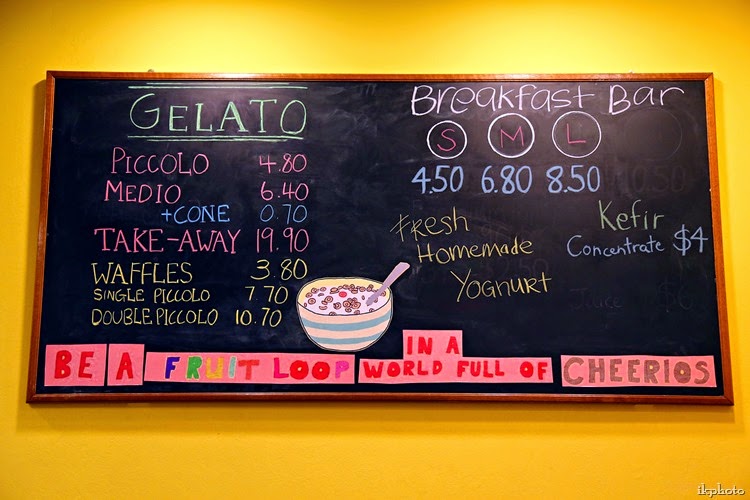 GELATO
PICCOLO 4.80
MEDIO 6.40
+CONE 0.70
TAKE-AWAY 19.90
WAFFLES 3.80
SINGLE PICCOLO 7.70
DOUBLE PICCOLO 10.70
Breakfast Bar
S M L
4.50 6.80 8.50 10.50
Fresh
Homemade
Yoghurt
Kefir
Concentrate $4
Juice
BE A FRUIT LOOP IN A
WORLD FULL OF CHEERIOS
ikphoto